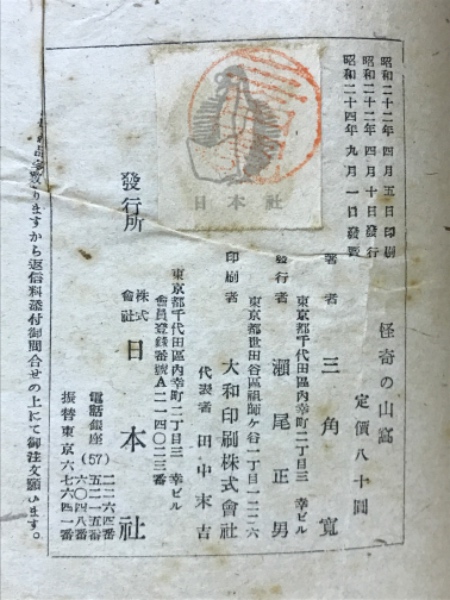 昭和二十二年四月五日印刷
昭和二十二年四月十日發行
昭和二十四年九月一日發賣
怪奇の山窩
定價八十圓
著者 三角寛
東京都千代田區內幸町二丁目三 幸ビル
發行者 瀬尾正男
東京都世田谷區祖師ヶ谷一丁目一二二六
印刷者 大和印刷株式會社
代表者 田中末吉
東京都千代田區內幸町二丁目三 幸ビル
會員登錄番號A二一四〇二三番
日本社
發行所
株式會社 日本社
電話銀座(57)
二二六四番
六〇四八番
五二一五番
振替東京六七六四一番
りますから返信料添付御問合せの上にて御注文願います。